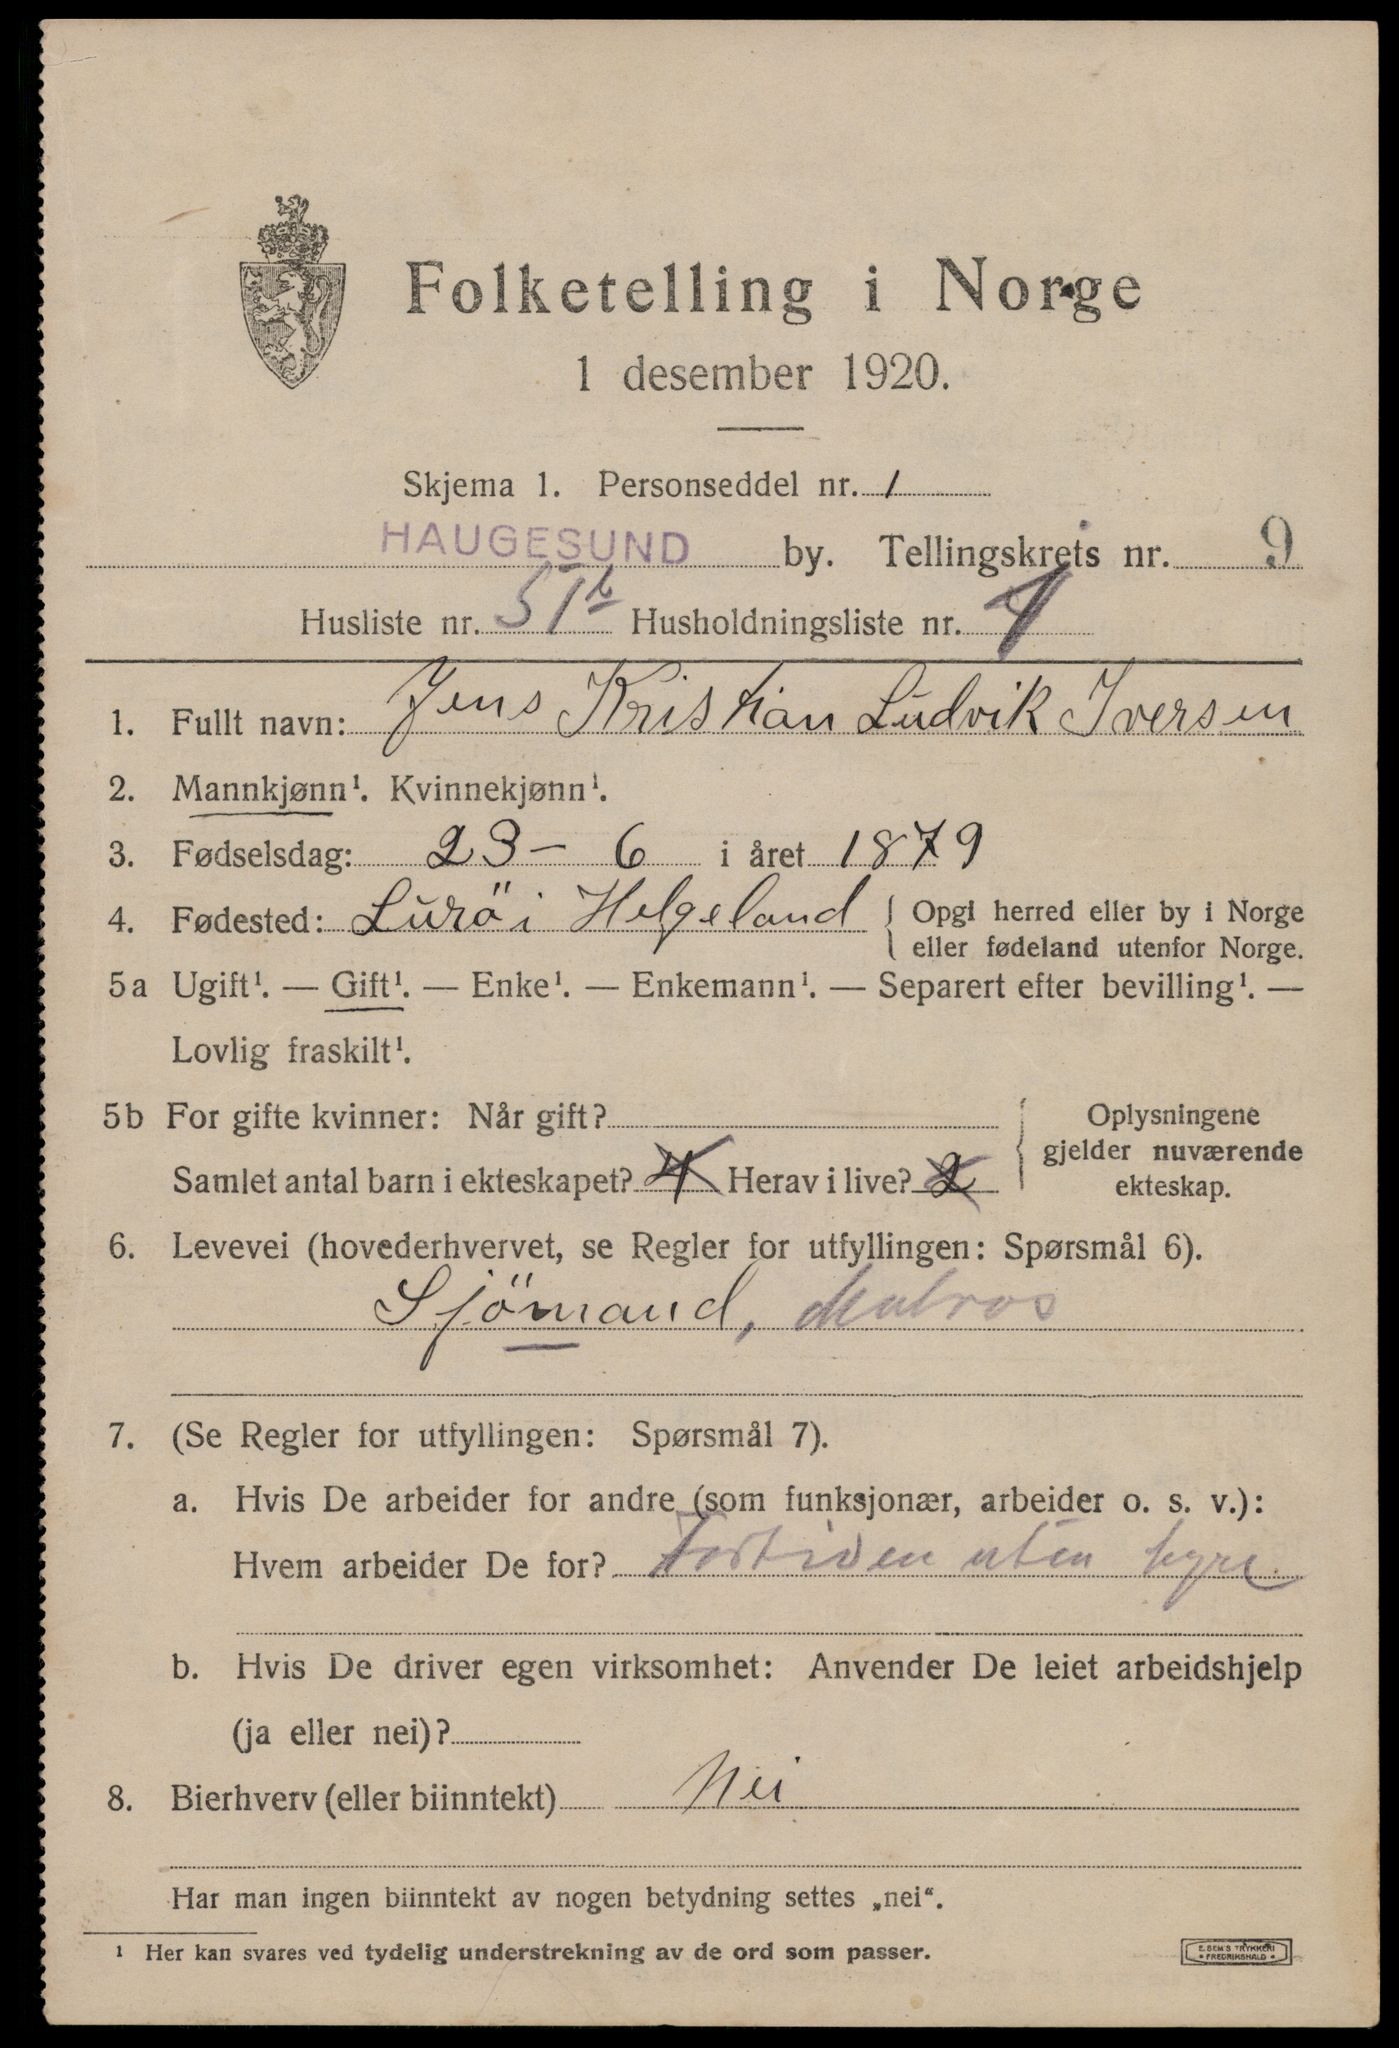 Folketelling i Norge
1 desember 1920.
Skjema 1. Personseddel nr. 1
HAUGESUND by. Tellingskrets nr. 9
Husliste nr. 51b Husholdningsliste nr. 1
1. Fullt navn: Jens Kristian Ludvik Iversen
2. Mannkjønn¹. Kvinnekjønn¹.
3. Fødselsdag: 23 - 6 i året 1879
4. Fødested: Lurö i Helgeland { Opgi herred eller by i Norge
eller fødeland utenfor Norge.
5a Ugift¹. — Gift¹. — Enke¹. — Enkemann¹. — Separert efter bevilling¹. —
Lovlig fraskilt¹.
5b For gifte kvinner: Når gift? { Oplysningene
gjelder nuværende
Samlet antal barn i ekteskapet? 4 Herav i live? 2 ekteskap.
6. Levevei (hovederhvervet, se Regler for utfyllingen: Spørsmål 6).
Sjömand, Matros
7. (Se Regler for utfyllingen: Spørsmål 7).
a. Hvis De arbeider for andre (som funksjonær, arbeider o. s. v.):
Hvem arbeider De for? Fortiden uten hyre
b. Hvis De driver egen virksomhet: Anvender De leiet arbeidshjelp
(ja eller nei)?
8. Bierhverv (eller biinntekt) Nei
Har man ingen biinntekt av nogen betydning settes „nei“.
¹ Her kan svares ved tydelig understrekning av de ord som passer.
E. SEM'S TRYKKERI
FREDRIKSHALD